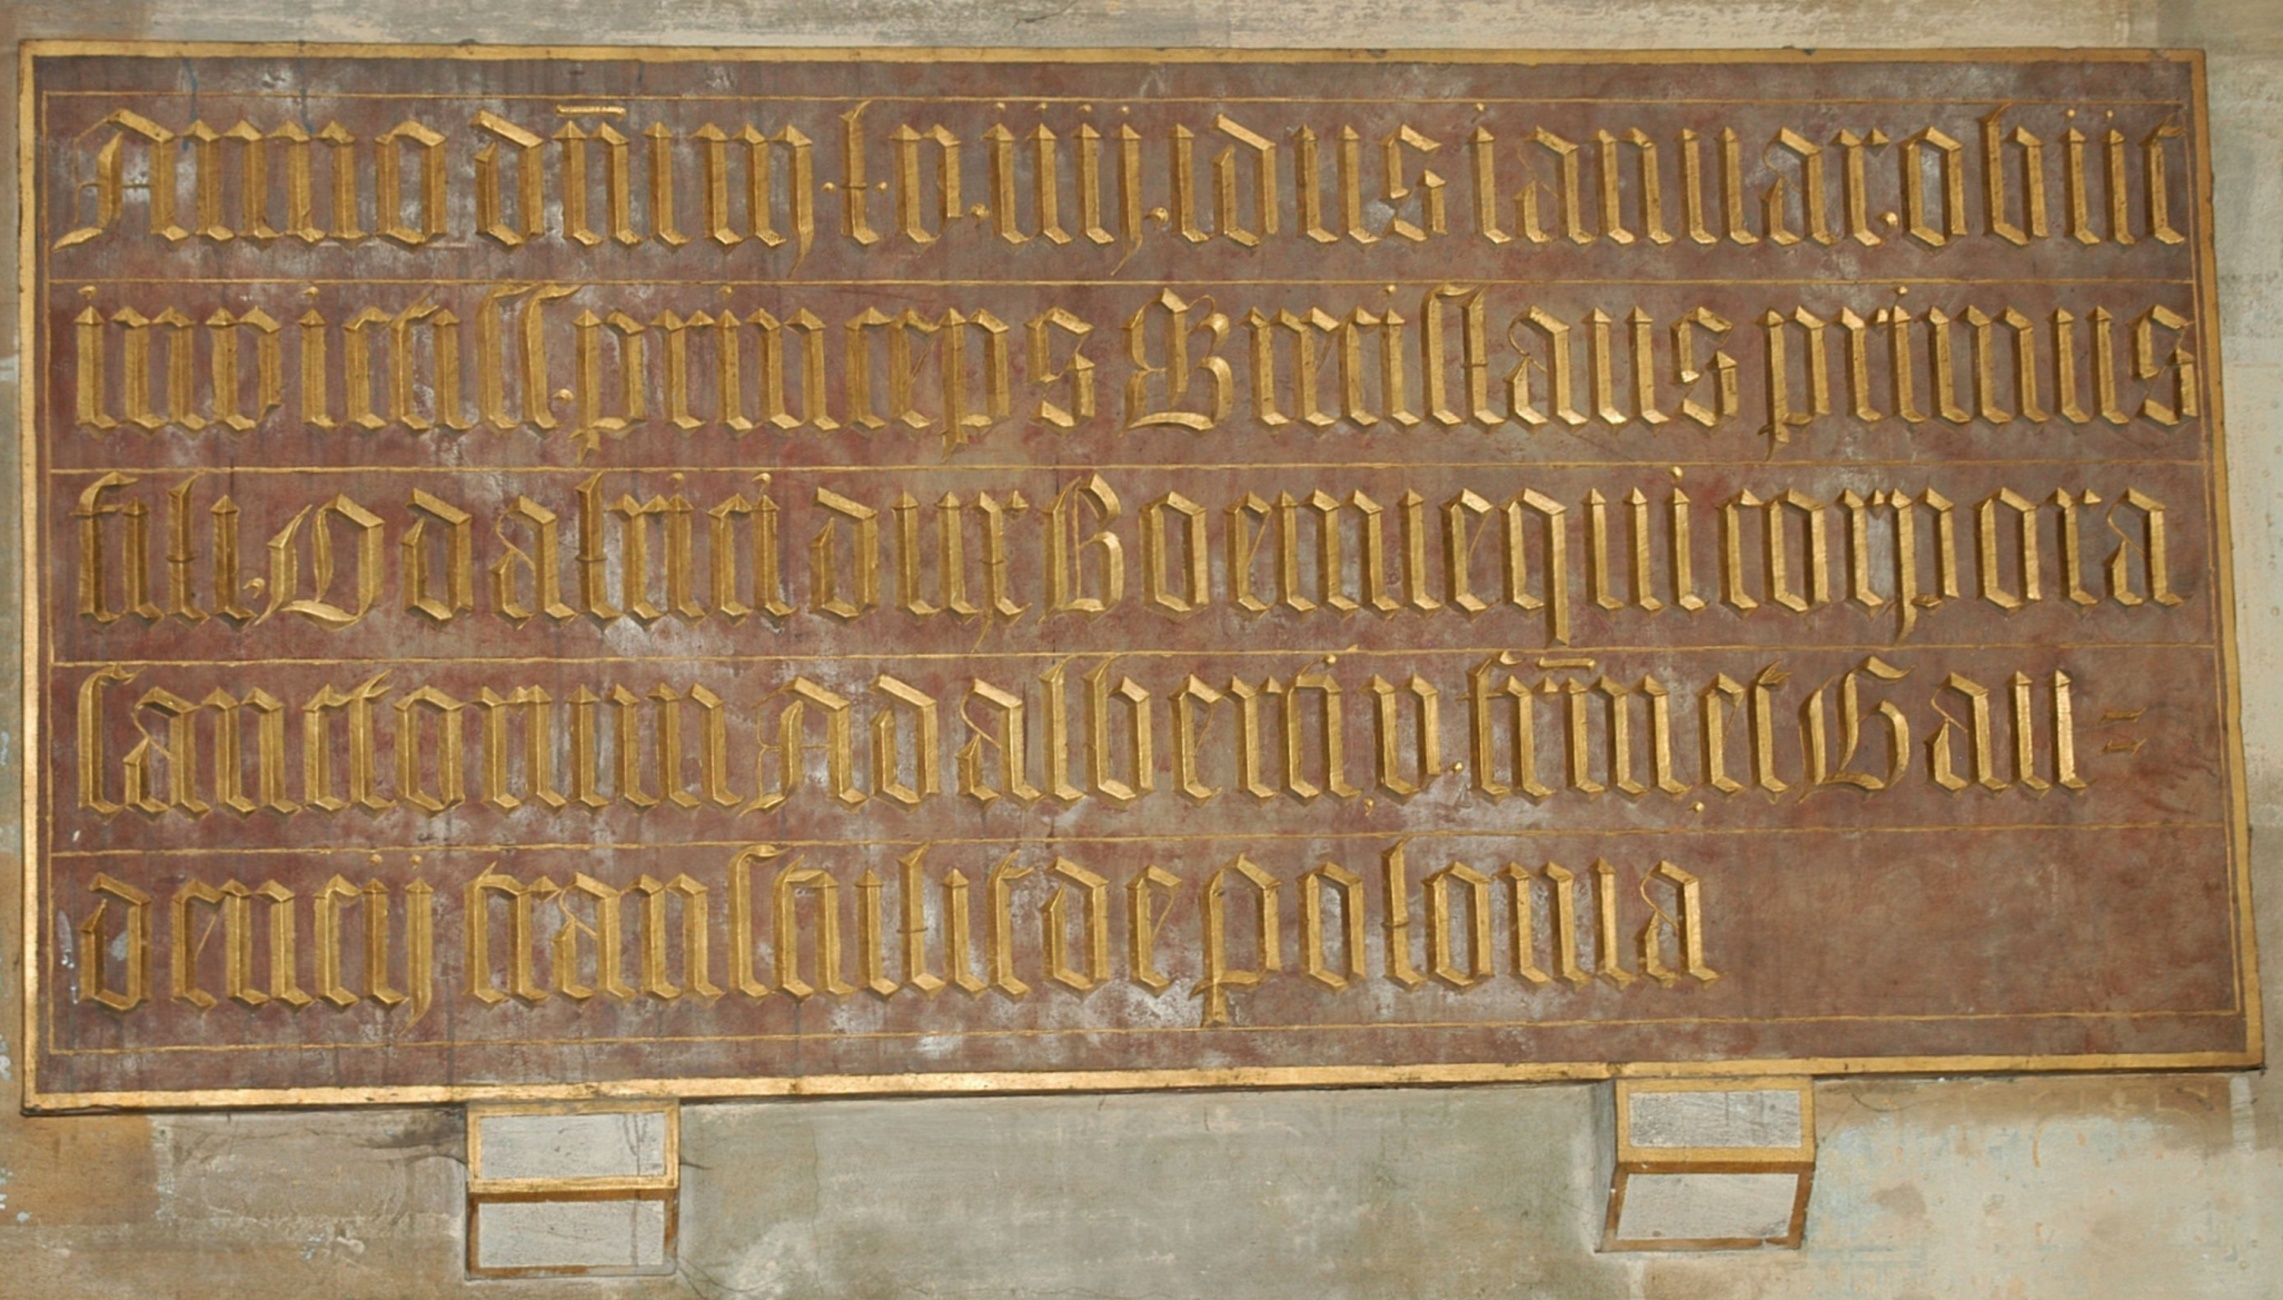 Anno dn̄i m ·l·v. iiij. idus ianuar. obiit
invictiſſ. princeps Breciſlaus primus
fili. Odalrici dux Boemie qui corpora
ſanctorum Adalberti, v. frm̄, et Gau=
dencij tranſtulit de polonia